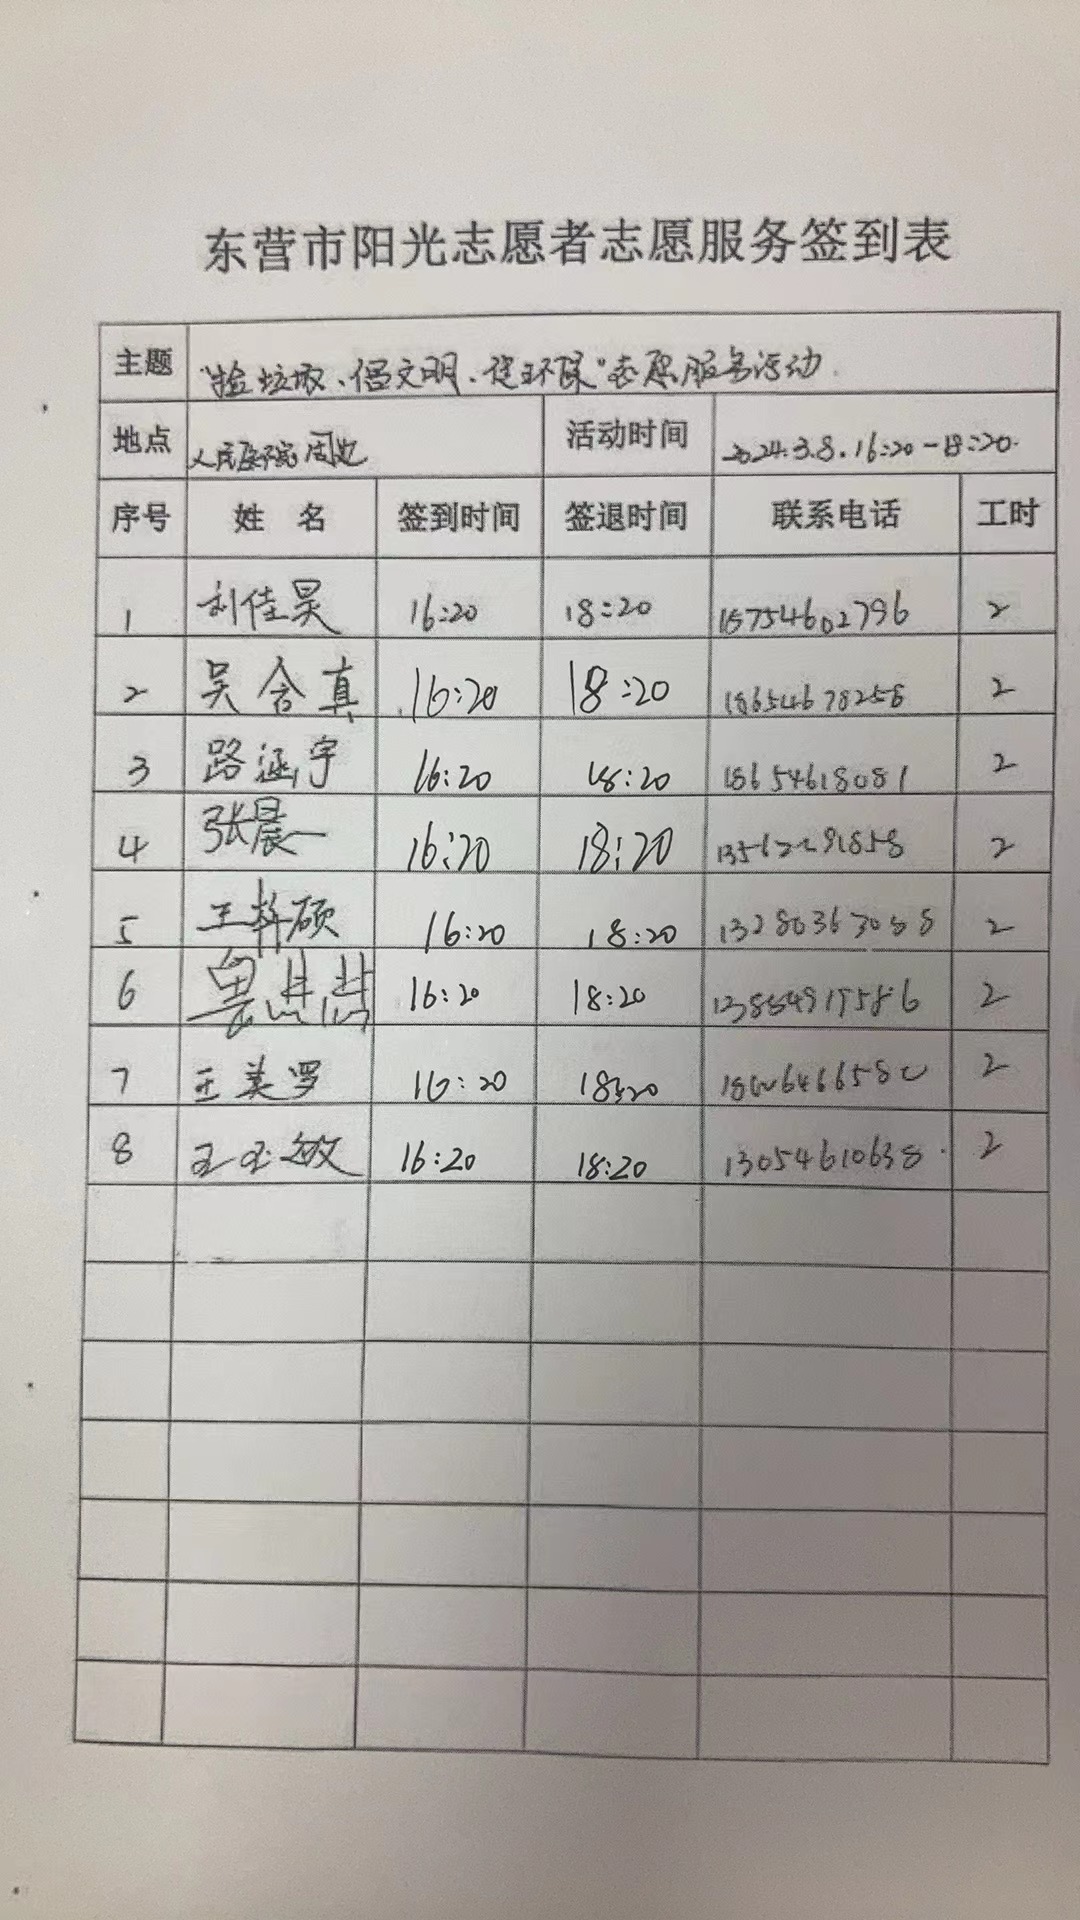 东营市阳光志愿者志愿服务签到表
主题 "捡垃圾、倡文明、促环保"志愿服务活动
地点 人民医院周边 活动时间 2024.3.8.16:20-18:20.
序号 姓 名 签到时间 签退时间 联系电话 工时
1 刘佳昊 16:20 18:20 15754602796 2
2 吴含真 16:20 18:20 18654678258 2
3 路涵宇 16:20 18:20 18654618081 2
4 张晨一 16:20 18:20 2
5 王梓硕 16:20 18:20 13280363088 2
6 16:20 18:20 2
7 王美罗 16:20 18:20 2
8 王玉敏 16:20 18:20 13054610638 2